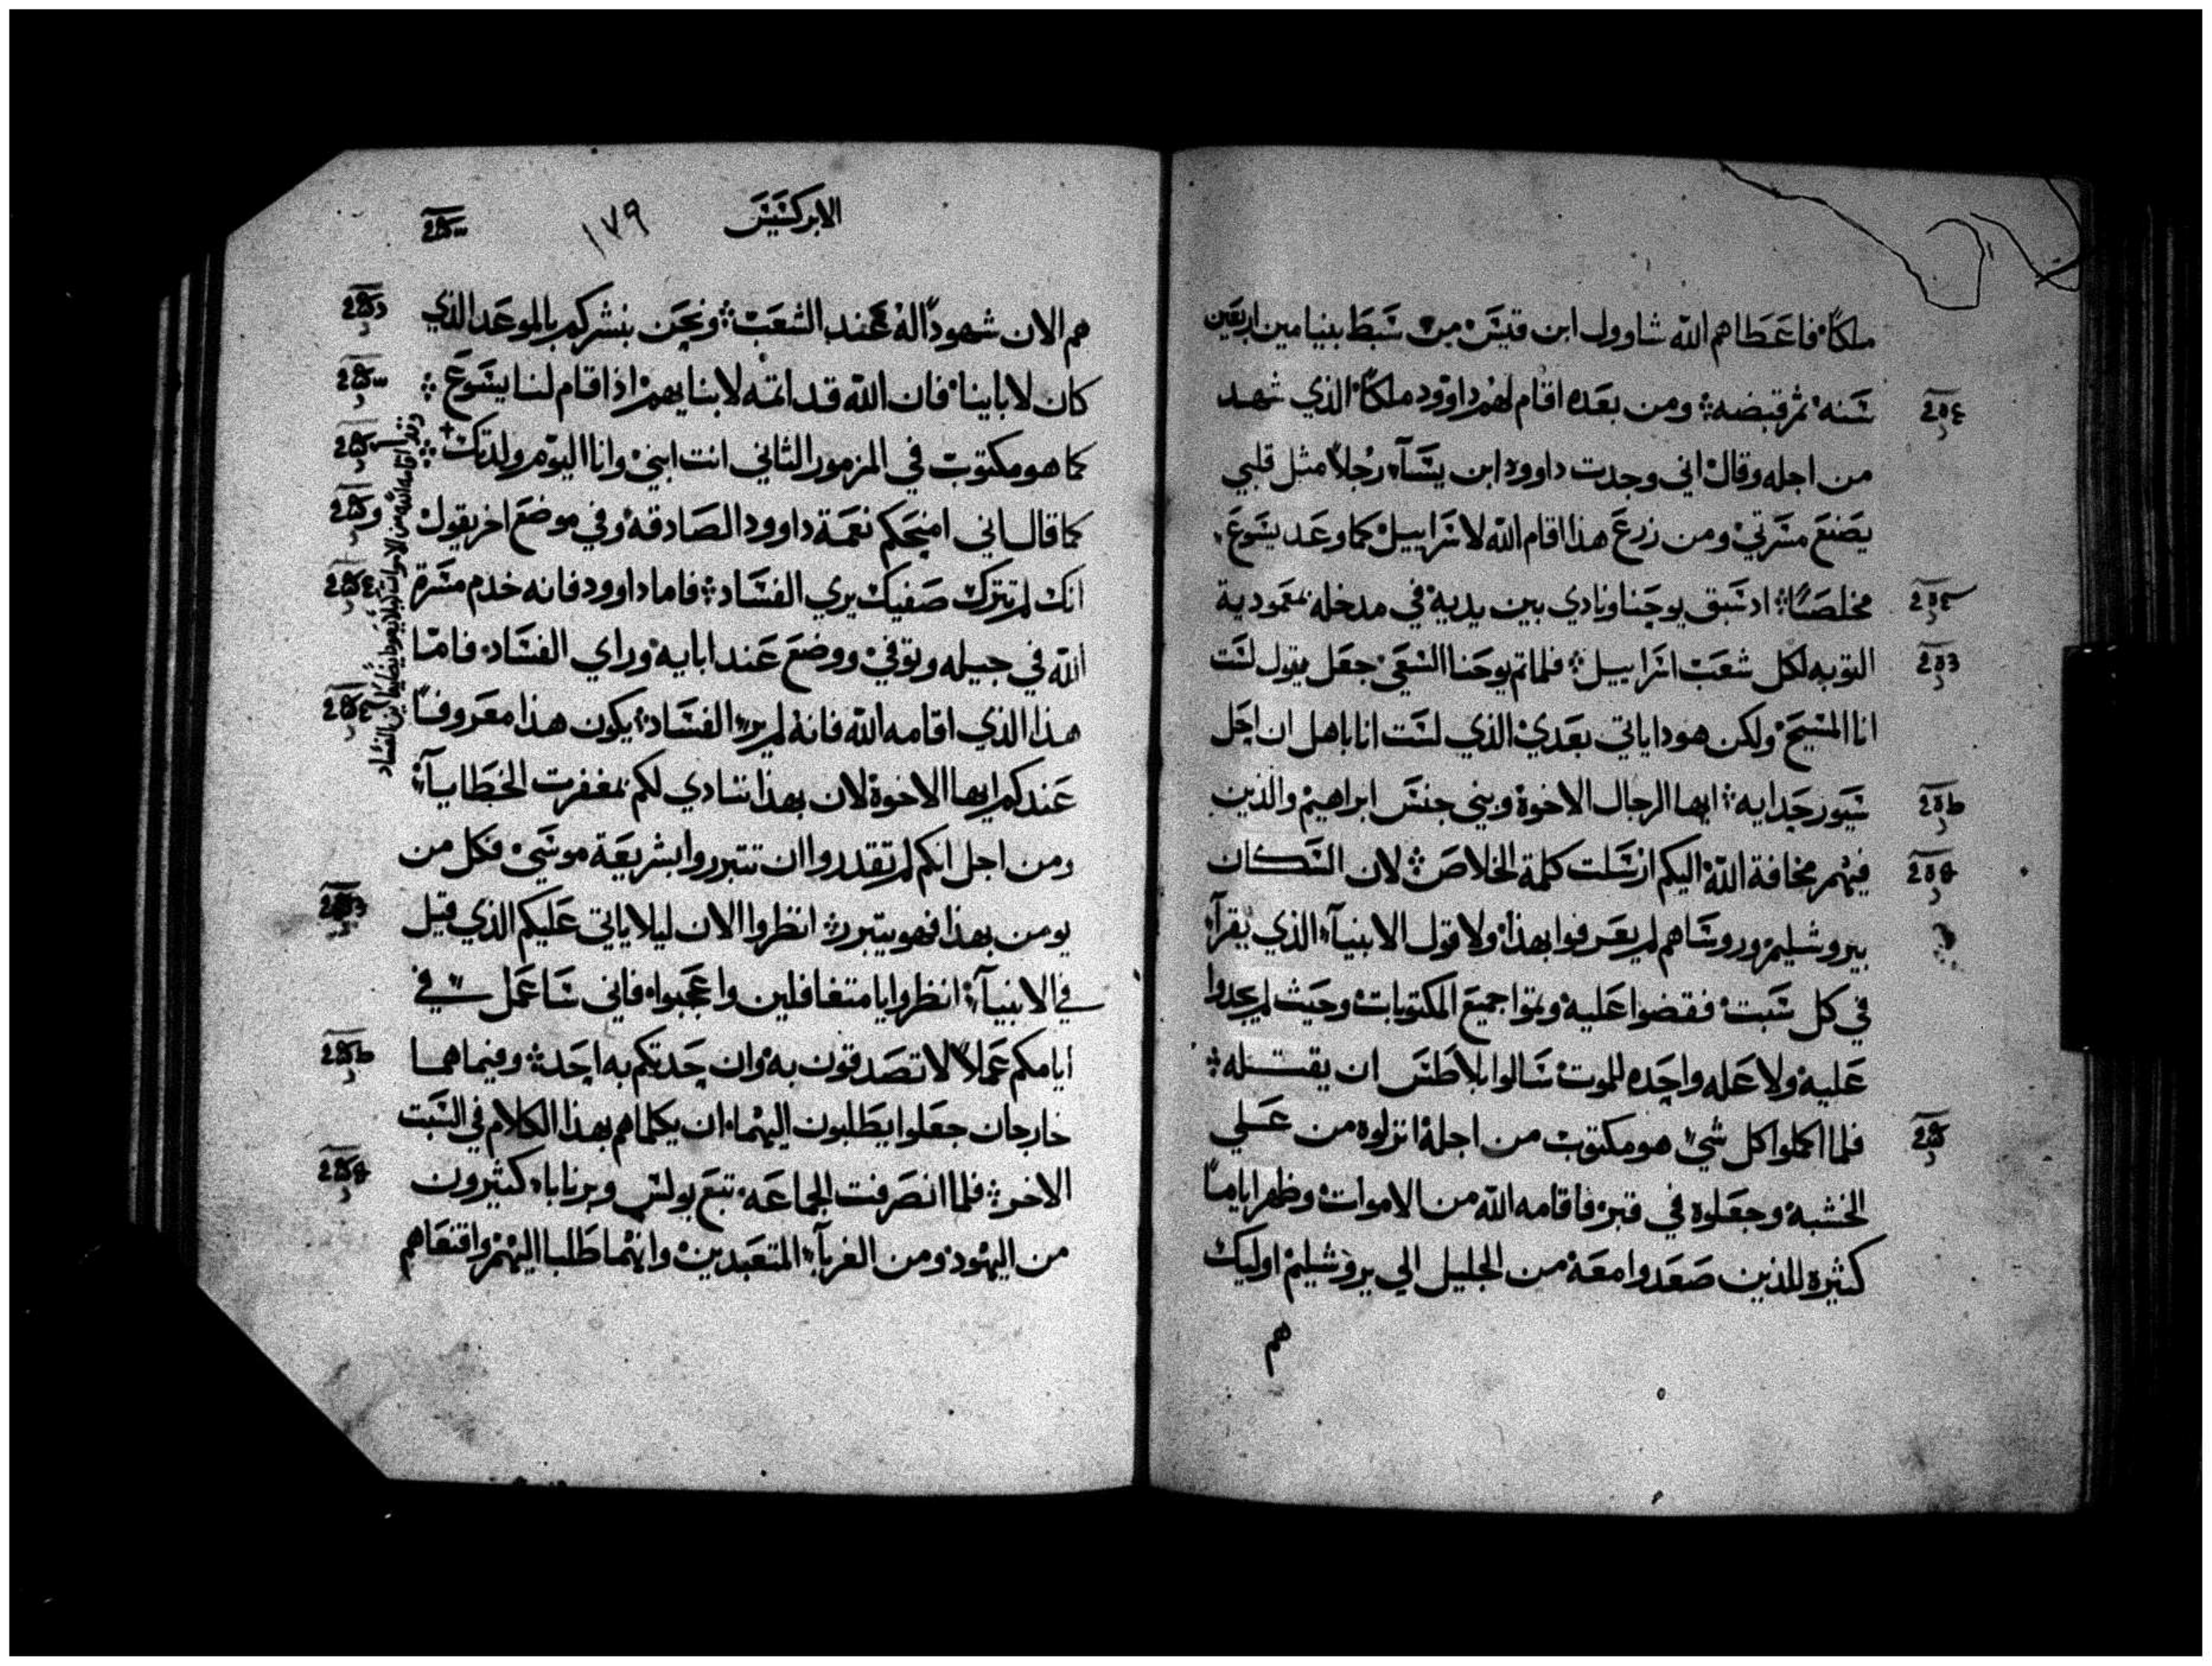 ملكًا فاعطاهم الله شاوول ابن قيس من سبط بنيامين اربعين
سنه ثم قبضه ومن بعده اقام لهم داوود ملكًا الذي شهد
من اجله وقال اني وجدت داوود ابن يسآء رجلاً مثل قلبي
يصنع مسرتي ومن زرع هذا اقام الله لاسراييل كما وعد يسوع
مخلصًا اذ سبق يوحنا ونادي بين يديه في مدخله بمعمودية
التوبه لكل شعب اسراييل فلما تم يوحنا السعي جعل يقول لست
انا المسيح ولكن هوذا ياتي بعدي الذي لست انا باهل ان احل
سيور حدايه ايها الرجال الاخوة وبني جنس ابراهيم والذين
فيهم مخافة الله اليكم ارسلت كلمة الخلاص لان السكان
بيروشليم وروساهم لم يعرفوا بهذا ولا قول الانبيآء الذي يقرآء
في كل سبت فقضوا عليه وتموا جميع المكتوبات وحيث لم يجدوا
عليه ولا عله واحده للموت سالوا بلاطس ان يقتله
فلما اكملوا كل شيء هو مكتوب من اجله انزلوه من علي
الخشبه وجعلوه في قبر فاقامه الله من الاموات وظهر ايامًا
كثيره للذين صعدوا معه من الجليل الي يروشليم اوليك
هم
الابركسيس
١٧٩
هم الان شهودًا له عند الشعب ونحن بنشركم بالموعد الذي
كان لاباينا فان الله قد اتمه لابنايهم اذ اقام لنا يسوع
كما هو مكتوب في المزمور الثاني انت ابني وانا اليوم ولدتك
كما قال اني امنحكم نعمة داوود الصادقه وفي موضع اخر يقول
انك لم تترك صفيك يري الفساد فاما داوود فانه خدم مسرة
الله في جيله وتوفي ووضع عند ابايه وراي الفساد فاما
هذا الذي اقامه الله فانه لم ير الفساد يكون هذا معروفًا
عندكم ايها الاخوة لان بهذا ننادي لكم بمغفرت الخطايآء
ومن اجل انكم لم تقدروا ان تتبرروا بشريعة موسي فكل من
يومن بهذا فهو يتبرر انظروا الان ليلا ياتي عليكم الذي قيل
في الانبيآء انظروا يا متغافلين واعجبوا فاني ساعمل في
ايامكم عملاً لا تصدقون به وان حدثكم به احد وفيما هما
خارجان جعلوا يطلبون اليهما ان يكلماهم بهذا الكلام في السبت
الاخر فلما انصرفت الجماعه تبع بولس وبرنابا كثيرون
من اليهود ومن الغربآء المتعبدين وانهما طلبا اليهم واقنعاهم